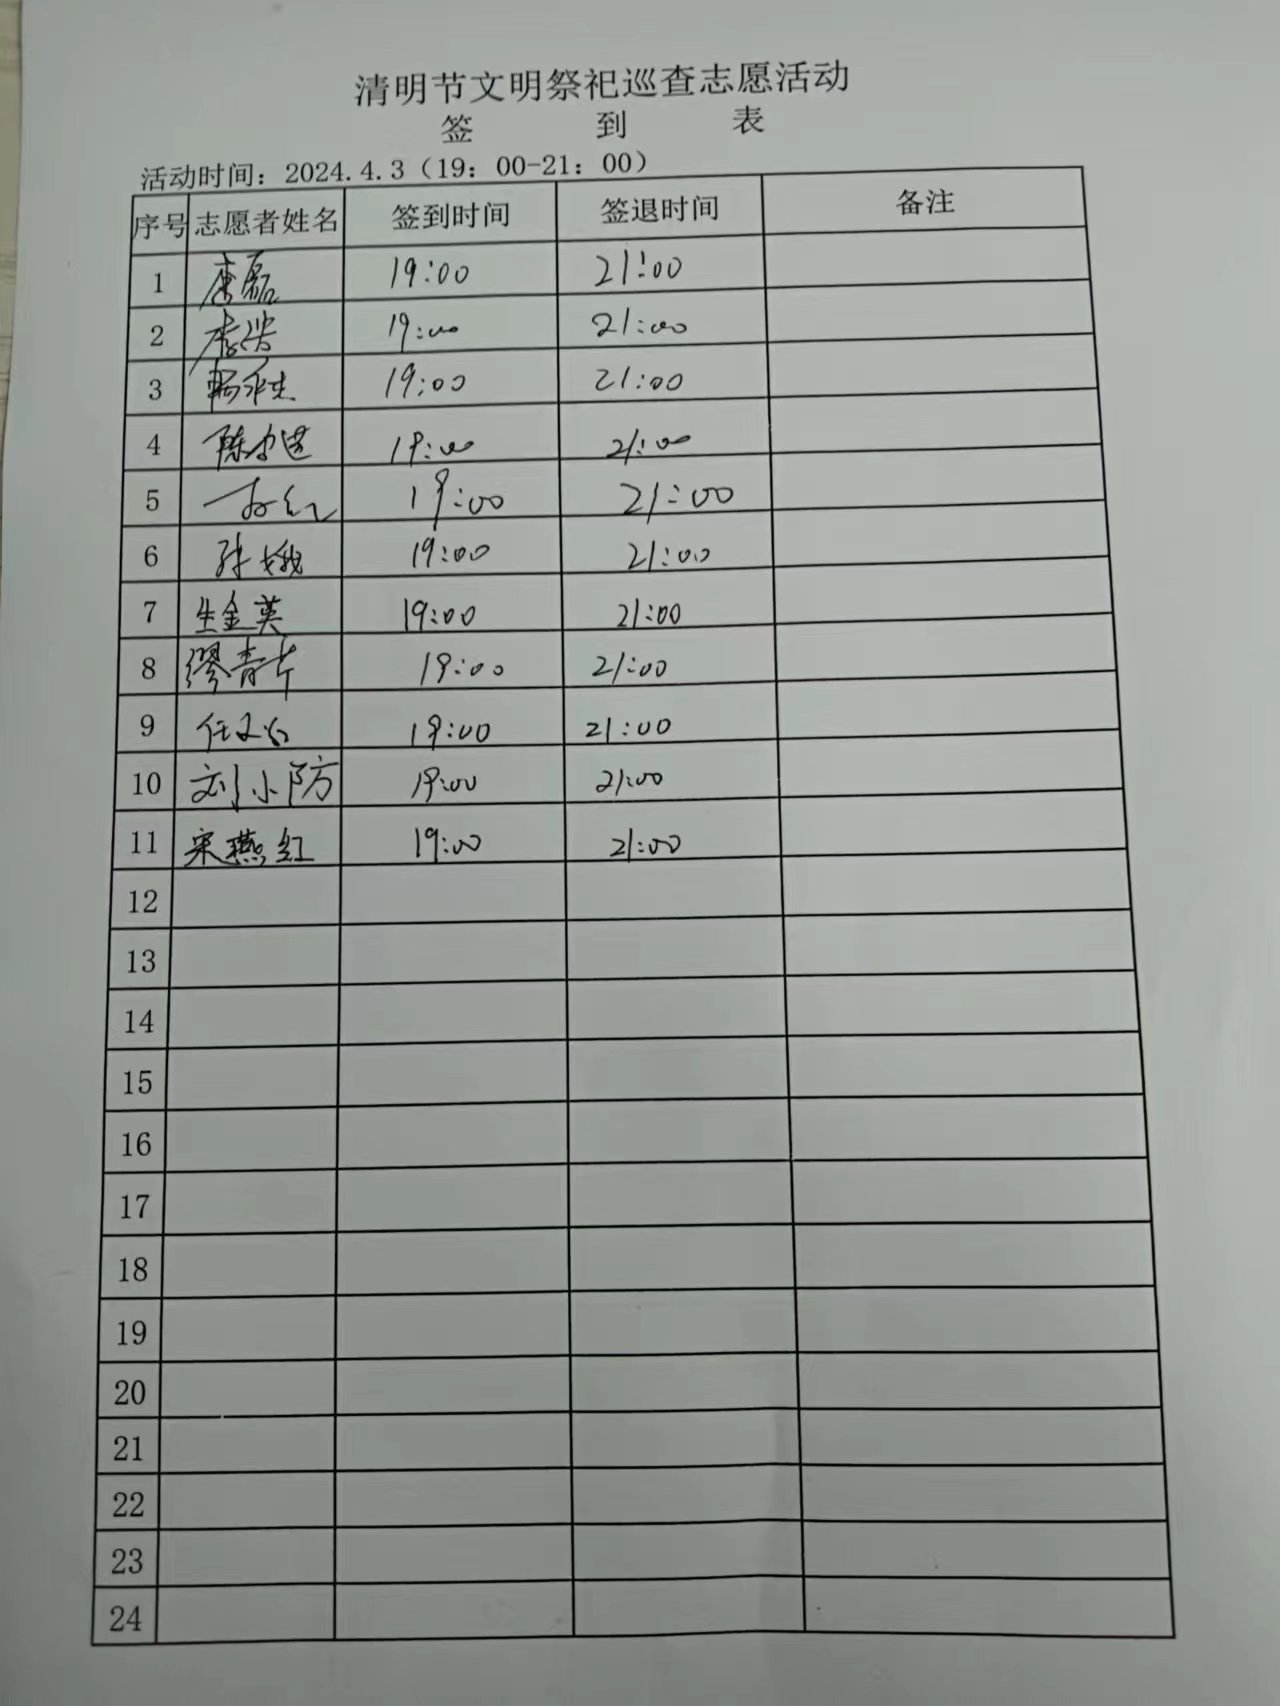 清明节文明祭祀巡查志愿活动
签 到 表
活动时间：2024.4.3（19：00-21：00）
序号 志愿者姓名 签到时间 签退时间 备注
1 李磊 19:00 21:00
2 19:00 21:00
3 19:00 21:00
4 19:00 21:00
5 19:00 21:00
6 19:00 21:00
7 生金英 19:00 21:00
8 缪青 19:00 21:00
9 19:00 21:00
10 刘小防 19:00 21:00
11 宋燕红 19:00 21:00
12
13
14
15
16
17
18
19
20
21
22
23
24